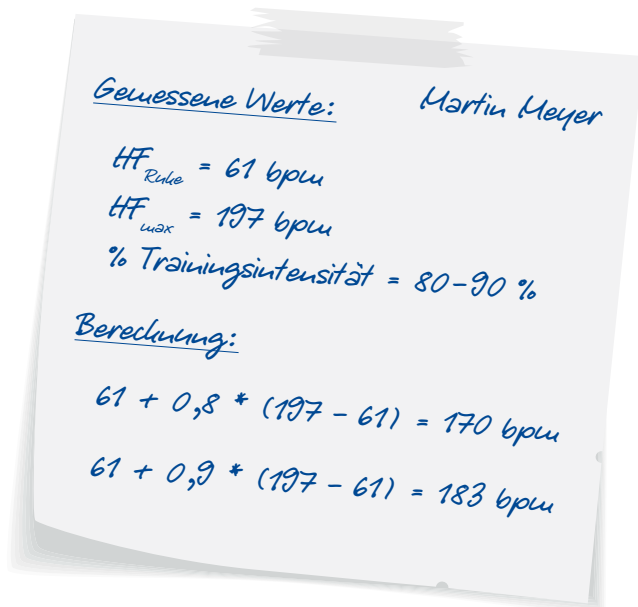 Gemessene Werte: Martin Meyer
HF Ruhe = 61 bpm
HF max = 197 bpm
% Trainingsintensität = 80–90 %
Berechnung:
61 + 0,8 * (197 – 61) = 170 bpm
61 + 0,9 * (197 – 61) = 183 bpm